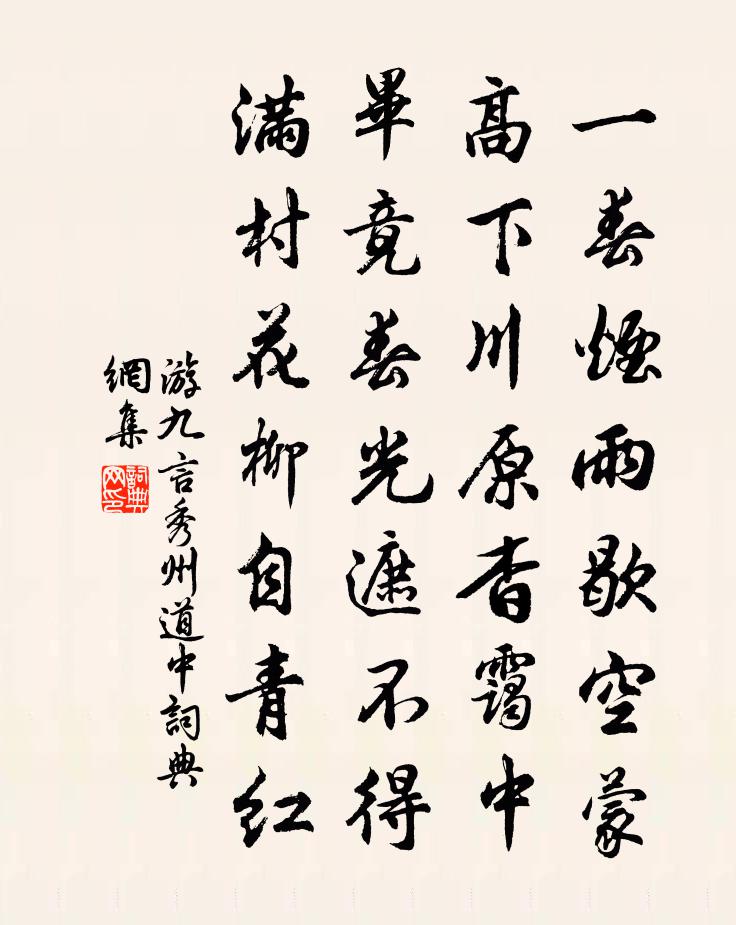 一春煙雨歇空蒙
高下川原杳靄中
畢竟春光遮不得
滿村花柳自青红
游九言秀州道中詞典
網集
詞典
网印